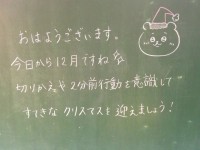 おはようございます。
今日から12月ですね
切りかえや2分前行動を意識して
すてきなクリスマスを迎えましょう!